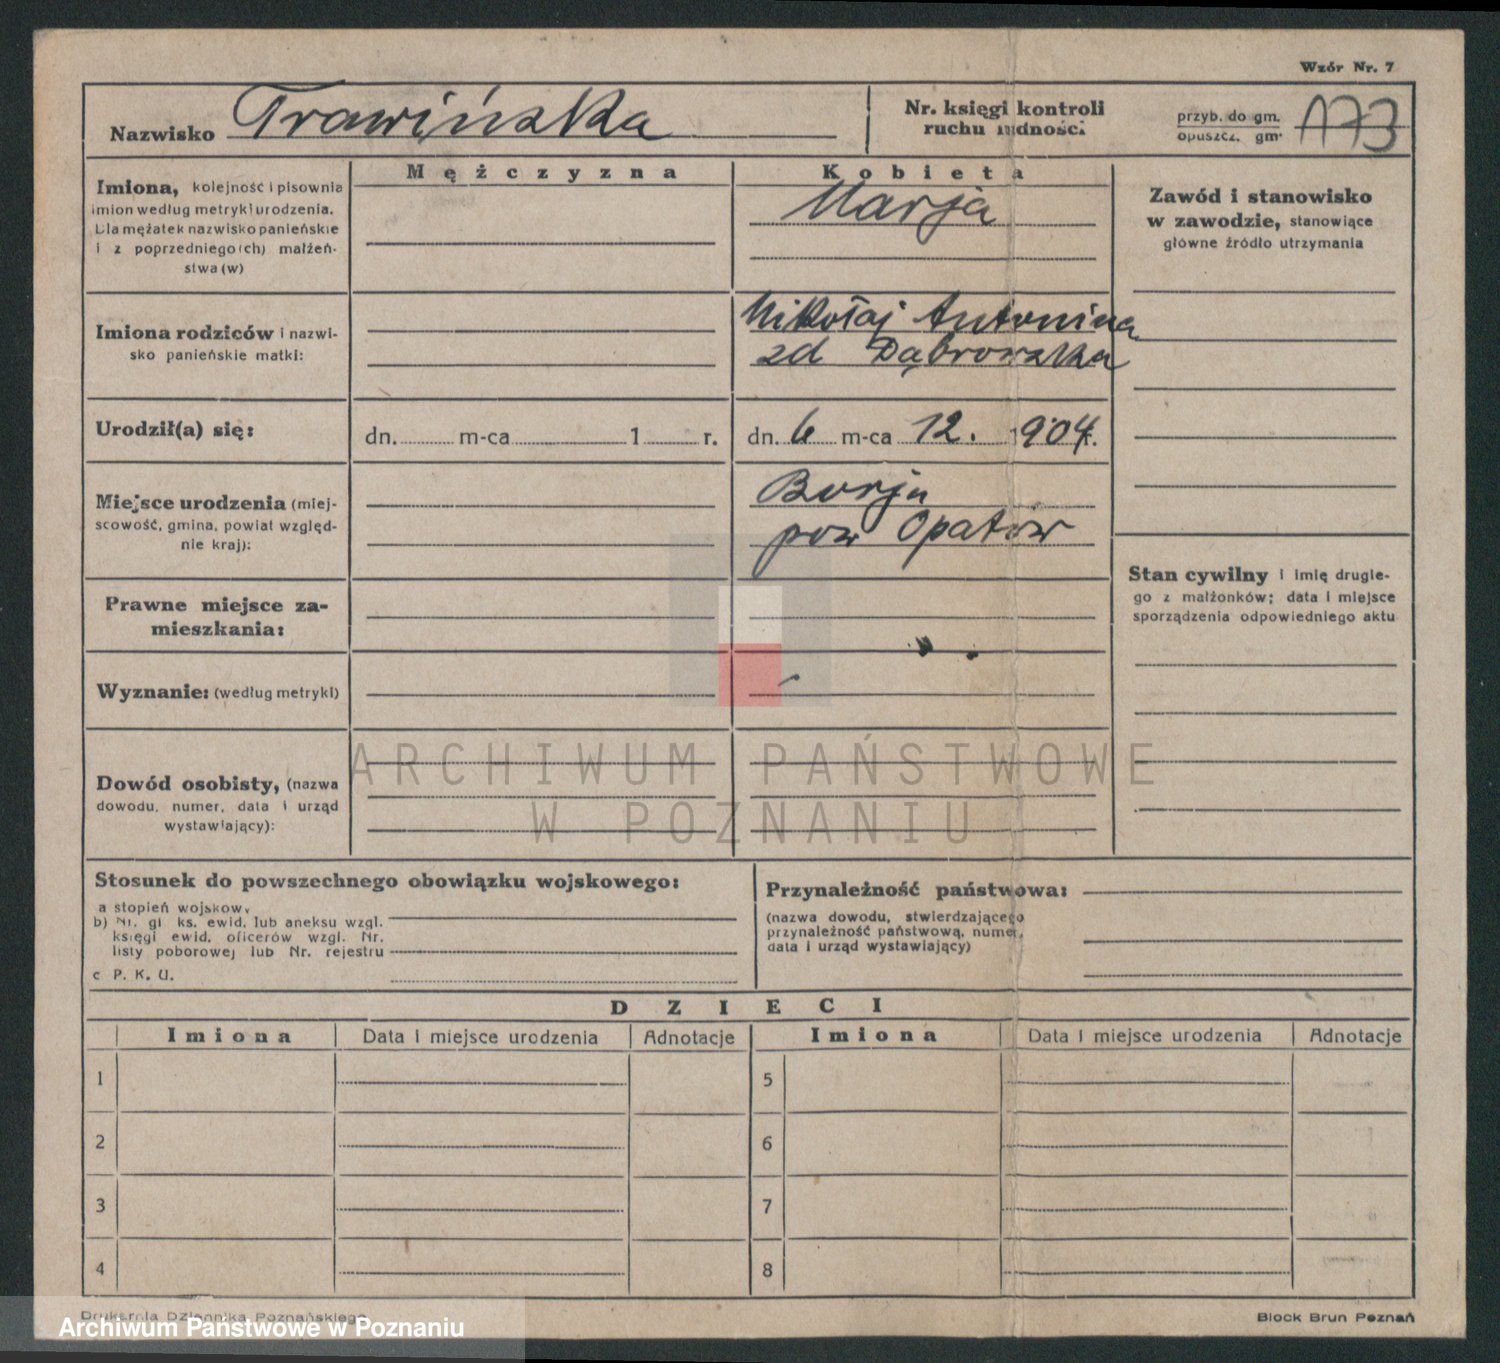 Wzór Nr. 7
Nazwisko Trawińska
Nr. księgi kontroli
ruchu ludności
przyb. do gm.
opuszcz. gm.
173
Mężczyzna
Kobieta
Imiona, kolejność i pisownia
imion według metryki urodzenia.
Dla mężatek nazwisko panieńskie
i z poprzedniego(ch) małżeń-
stwa (w)
Marja
Zawód i stanowisko
w zawodzie, stanowiące
główne źródło utrzymania
Imiona rodziców i nazwi-
sko panieńskie matki:
Mikołaj Antonina
zd Dąbrowska
Urodził(a) się:
dn. m-ca 1 r.
dn. 6 m-ca 12. 1904.
Miejsce urodzenia (miej-
scowość, gmina, powiat względ-
nie kraj):
Borja
pow Opatów
Stan cywilny i imię drugie-
go z małżonków; data i miejsce
sporządzenia odpowiedniego aktu
Prawne miejsce za-
mieszkania:
Wyznanie: (według metryki)
Dowód osobisty, (nazwa
dowodu, numer, data i urząd
wystawiający):
ARCHIWUM PAŃSTWOWE
W POZNANIU
Stosunek do powszechnego obowiązku wojskowego:
a stopień wojskowy
b) Nr. gł ks. ewid. lub aneksu wzgl.
księgi ewid. oficerów wzgl. Nr.
listy poborowej lub Nr. rejestru
c P. K. U.
Przynależność państwowa:
(nazwa dowodu, stwierdzającego
przynależność państwową, numer,
data i urząd wystawiający)
DZIECI
Imiona Data i miejsce urodzenia Adnotacje Imiona Data i miejsce urodzenia Adnotacje
1 5
2 6
3 7
4 8
Drukarnia Dziennika Poznańskiego
Block Brun Poznań
Archiwum Państwowe w Poznaniu